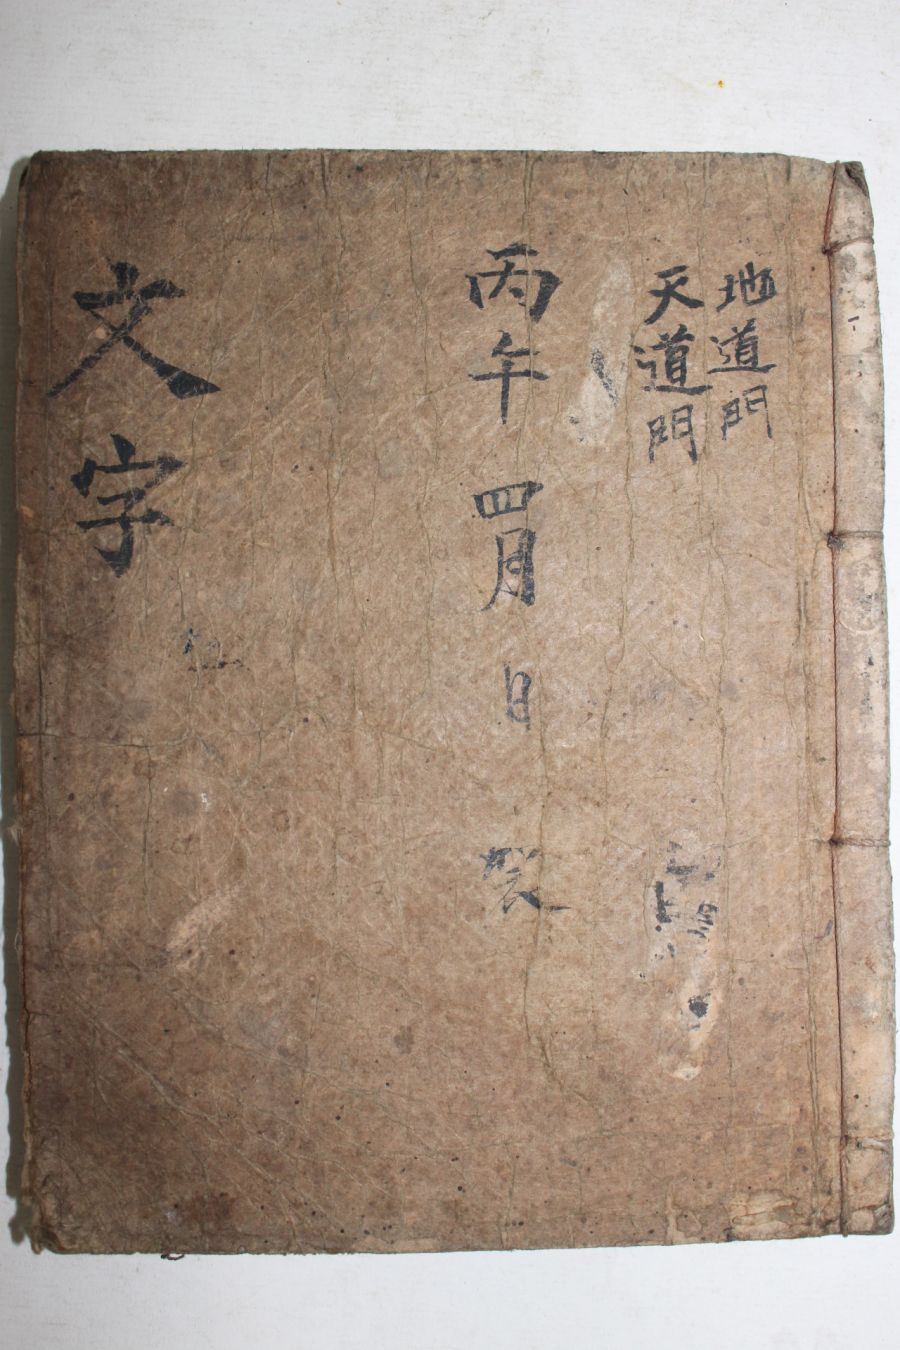 地道門
天道門
丙午四月 日 製
文字